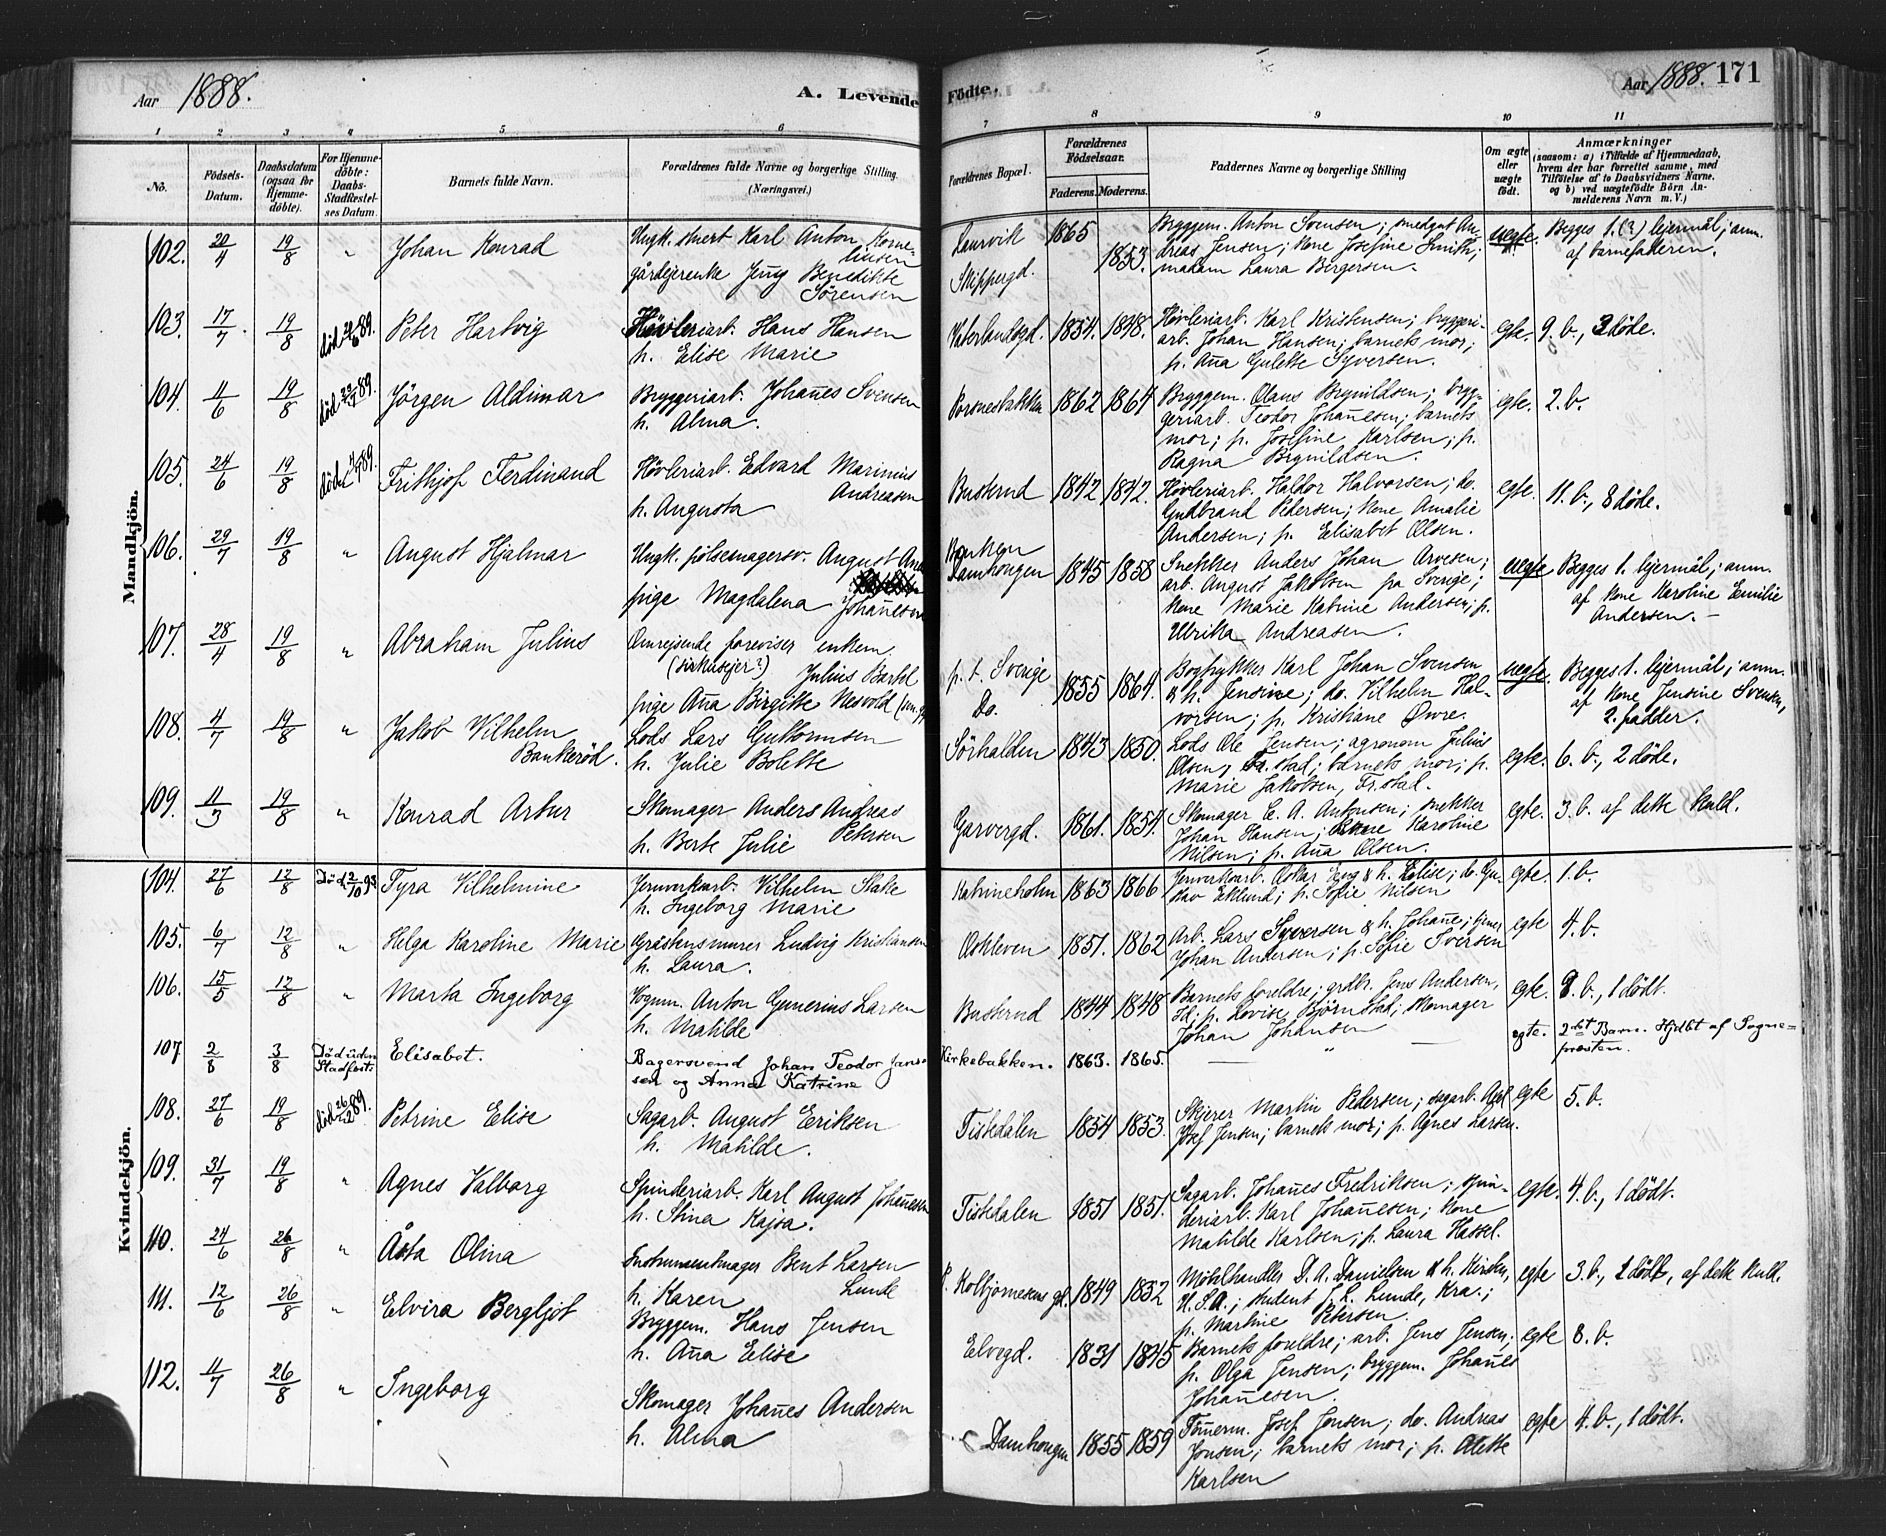 Aar 1888.
A. Levende Fødte.
Aar 1888. 171
1 2 3 4 5 6 7 8 9 10 11
No.
Fødsels-
Datum.
Daabsdatum
(ogsaa for
Hjemme-
døbte).
For Hjemme-
døbte:
Daabs-
Stadfæstel-
ses Datum.
Barnets fulde Navn.
Forældrenes fulde Navne og borgerlige Stilling
(Næringsvei.)
Forældrenes Bopæl.
Forældrenes
Fødselsaar.
Faderens. Moderens.
Faddernes Navne og borgerlige Stilling
Om ægte
eller
uægte
født.
Anmærkninger
(saasom: a) i Tilfælde af Hjemmedaab,
hvem der har forrettet samme, med
Tilføielse af to Daabsvidners Navne.
og b) ved uægtefødte Børn An-
melderens Navn m. V.)
Mandkjön.
102. 20/4 19/8 " Johan Konrad
Ungk. Karl Anton Korne-
liusen
gårdejerenke Jeny Benedikte
Sörensen
Laurvik
Skippergd.
1865
1853.
Bryggem. Anton Svensen; smedgut An-
dreas Jensen; kone Josefine Smith;
madam Laura Bergersen.
uegte.
Begges 1.(?) lejermål; anm.
af barnefaderen.
103. 17/7. 19/8 död 89. Peter Hartvig
Hövleriarb. Hans Hansen
h. Elise Marie
Vaterlandsgd. 1854. 1848.
Hövleriarb. Karl Kristensen; bryggeri-
arb. Johan Hansen; barnets mor;
p. Aña Gulette Syversen.
egte. 9. b., 2 döde.
104. 11/6 19/8 död 89. Jörgen Aldimar
Bryggeriarb. Johañes Svensen
h. Alma.
Porsnesbakken 1862 1864
Bryggem. Olaus Brynildsen; bryg-
geriarb. Teodor Johañesen; barnets
mor; p. Josefine Karlsen; p.
Ragna Brynildsen.
egte. 2. b.
105. 24/6 19/8 död 89. Frithjof Ferdinand
Hövleriarb. Edvard Marinius
Andreasen
h. Augusta
Buskerud 1842 1842.
Hövleriarb. Haldor Halvorsen; do.
Gudbrand Pedersen; kone Amalie
Andersen; p. Elisabet Olsen.
egte. 11. b., 8 döde.
106. 29/7 19/8 " August Hjalmar
Ungk. pölsemagersv. August
pige Magdalena Johañesen
Banken
Damhougen 1845 1858
Snekker Anders Johan Arvesen;
arb. August Jakobsen pa Sverige;
kone Marie Katrine Andersen; p.
Ulrika Andreasen.
uegte
Begges 1. lejermål; anm.
af kone Karoline Emilie
Andersen. –
107. 28/4 19/8 " Abraham Julius
Omrejsende foreviser enkem.
(sirkusejer?) Julius Bartel
pige Aña Birgitte Nesvold
p. t. Sverige
Do. 1855 1864.
Bogtrykker Karl Johan Svensen
& h. Jensine; do. Vilhelm Hal-
vorsen; p. Kristiane Øvre.
uegte.
Begges 1. lejermål; anm.
af kone Jensine Svensen,
2. fadder.
108. 4/7 19/8 " Jakob Vilhelm
Bankeröd.
Lods Lars Guttormsen
h. Julie Bolette
Sörhalden 1843 1850.
Lods Ole Jensen; agronom Julius
Olsen, Fr.stad; barnets mor; p.
Marie Jakobsen, Fr.stad.
egte. 6. b., 2 döde.
109. 11/3 19/8 " Konrad Artur
Skomager Anders Andreas
Petersen
h. Berte Julie
Garvergd. 1861. 1854.
Skomager C. A. Antonsen; snekker
Johan Hansen; kone Karoline
Nilsen; p. Aña Olsen.
egte. 3. b. af dette kuld.
Kvindekjön.
104. 27/6 12/8 Död 2/10 93 Tyra Vilhelmine
Jernverksarb. Vilhelm Stake
h. Ingeborg Marie
Katrineholm 1863 1866
Jernverksarb. Oskar & h. Elise; do. Gu-
stav Eklund; p. Sofie Nilsen
egte. 1. b.
105. 6/7 12/8 " Helga Karoline Marie
Gråstensmurer Ludvig Kristiansen
h. Laura.
Oskleven 1851. 1862
Arb. Lars Syversen & h. Johañe;
Johan Andersen; p. Sofie Iversen
egte 4. b.
106. 15/5 12/8 " Marta Ingeborg
Vognm. Anton Gunerius Larsen
h. Matilde
Buskerud 1844 1848
Barnets foreldre; grdbr. Jens Andersen,
Id; p. Lovise Björnstad; skomager
Johan Johansen
egte. 8. b., 1 dödt.
107 2/8 3/8 Död uden
Stadfest. Elisabet.
Bagersvend Johan Teodor Jans-
sen og Anna Katrine
Kirkebakken. 1863. 1865. — " —
egte. 2det Barn. Hjdbt af Sogne-
præsten.
108. 27/6 19/8 död 26/2 89. Petrine Elise
Sagarb. August Eriksen
h. Matilde.
Tistedalen 1854 1853.
Skjerer Martin Pedersen; sagarb. Axel
Josef Jensen; barnets mor; p. Agnes Larsen.
egte 5. b.
109. 31/7 19/8 " Agnes Valborg
Spinderiarb. Karl August Johañesen
h. Stina Kajsa.
Tistedalen 1851 1851.
Sagarb. Johañes Fredriksen; spin-
deriarb. Karl Johañesen; kone
Matilde Karlsen; p. Laura Hassel.
egte. 4. b., 1 dödt.
110. 24/6 26/8 " Åsta Olina
Instrumentmager Bent Larsen
Lunde
h. Karen
P. Kolbjörnsens gd. 1849 1852
Möhlhandler D. A. Danielsen & h. Kirsten,
U. S. A.; student J. L. Lunde, Kra.;
p. Martine Petersen.
egte 3. b., 2 dödt, af dette kuld.
111. 12/6 26/8 " Elvira Bergljot
Bryggem. Hans Jensen
h. Aña Elise
Elvegd. 1831 1845
Barnets foreldre; arb. Jens Jensen;
p. Olga Jensen; bryggem. Johañes
Johañesen.
egte 8. b.
112. 11/7 26/8 " Ingeborg
Skomager Johañes Andersen
h. Alma
Damhougen 1855 1859
Tömerm. Josef Jonsen; do. Andreas
Jonsen; barnets mor; p. Alette
Karlsen
egte 4. b., 1 dödt.